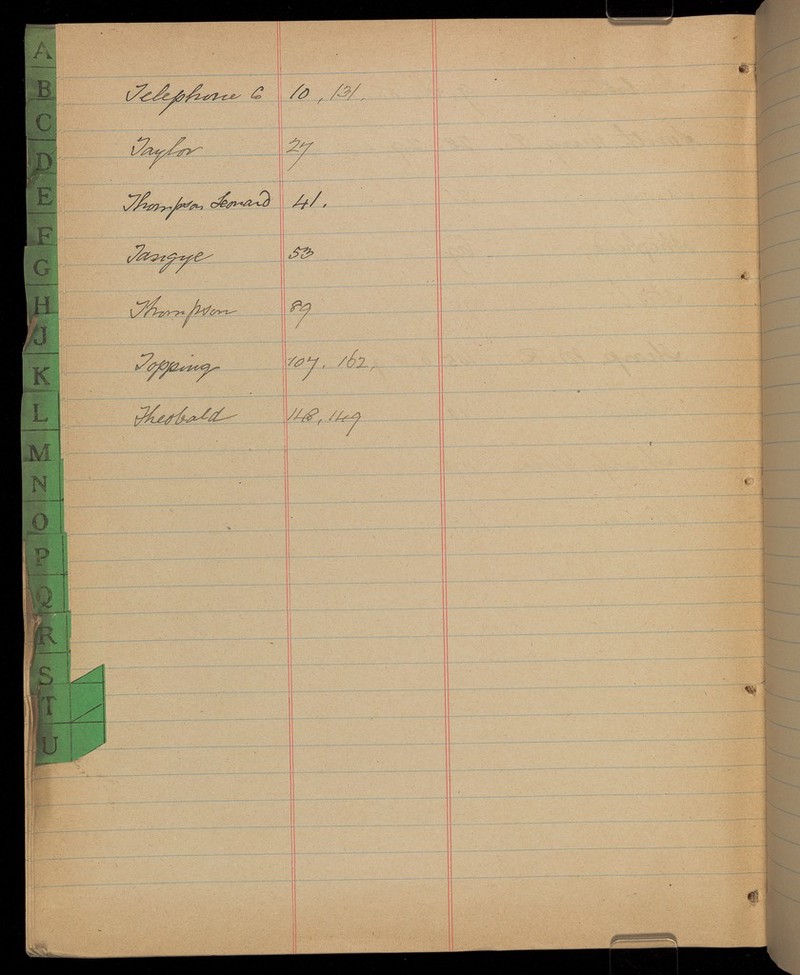 A
B
C
D
E
F
G
H
J
K
L
M
N
O
P
Q
R
S
T
U
Telephone Co 10, 131.
Taylor 27
Thompson Leonard 41.
Tangye 53
Thompson 89
Topping 107. 162.
Theobald 148, 149